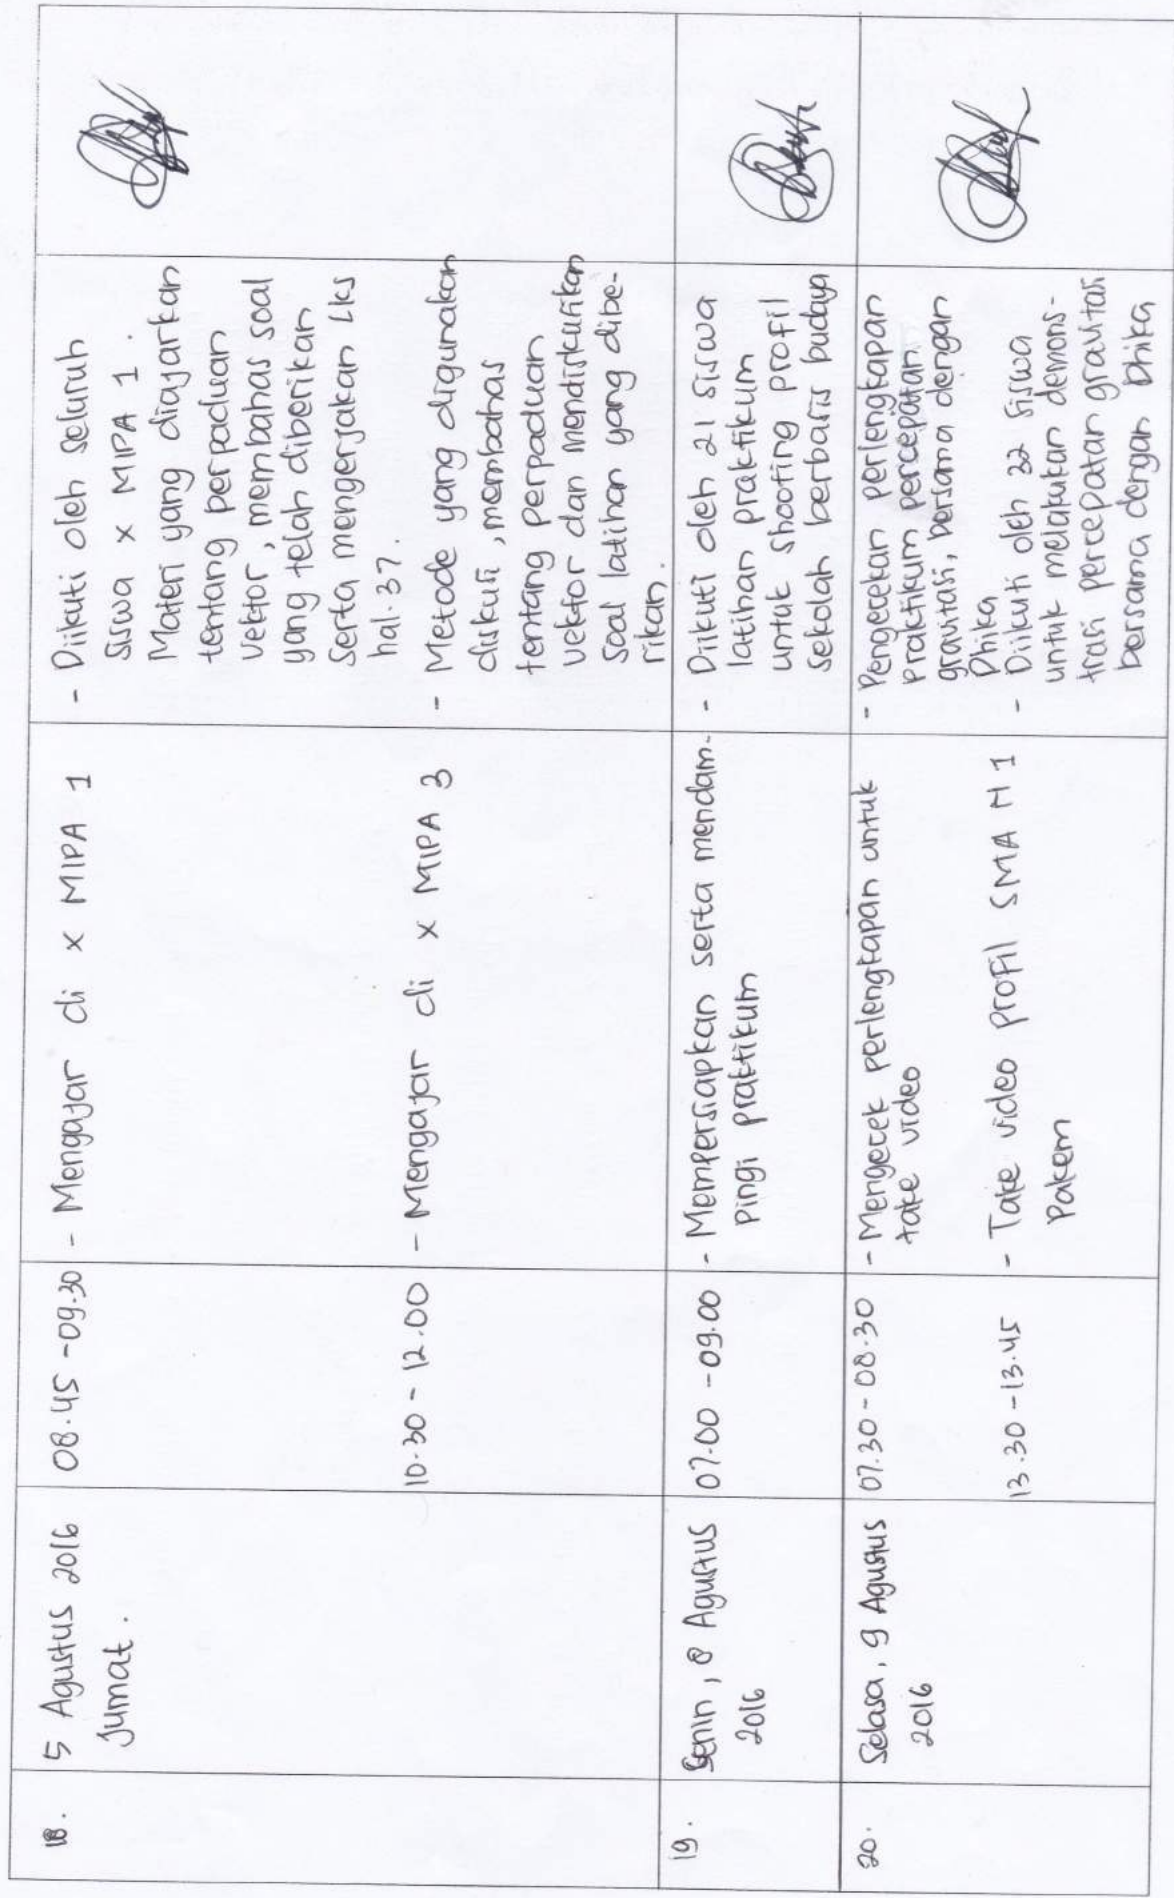 18.
5 Agustus 2016
Jumat.
08.45 - 09.30
- Mengajar di X MIPA 1
- Diikuti oleh seluruh
siswa X MIPA 1.
Materi yang diajarkan
tentang perpaduan
vektor, membahas soal
yang telah diberikan
serta mengerjakan LKS
hal. 37.
10.30 - 12.00
- Mengajar di X MIPA 3
- Metode yang digunakan
diskusi, membahas
tentang perpaduan
vektor dan mendiskusikan
soal latihan yang dibe-
rikan.
19.
Senin, 8 Agustus
2016
07.00 - 09.00
- Mempersiapkan serta mendam-
pingi praktikum
- Diikuti oleh 21 siswa
latihan praktikum
untuk shooting profil
sekolah berbasis budaya
20.
Selasa, 9 Agustus
2016
07.30 - 08.30
- Mengecek perlengkapan untuk
take video
- Pengecekan perlengkapan
praktikum percepatan
gravitasi, bersama dengan
Dhika
13.30 - 13.45
- Take video profil SMA N 1
Pakem
- Diikuti oleh 32 siswa
untuk melakukan demons-
trasi percepatan gravitasi
bersama dengan Dhika